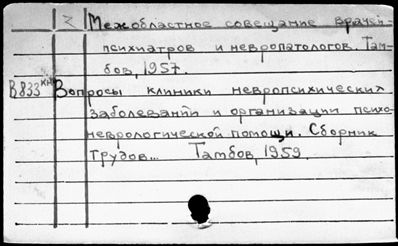 2 Межобластное совещание врачей-
психиатров и невропатологов. Там-
бов, 1957.
В833кн Вопросы клиники невропсихических
заболеваний и организации психо-
неврологической помощи. Сборник
трудов... Тамбов, 1959.